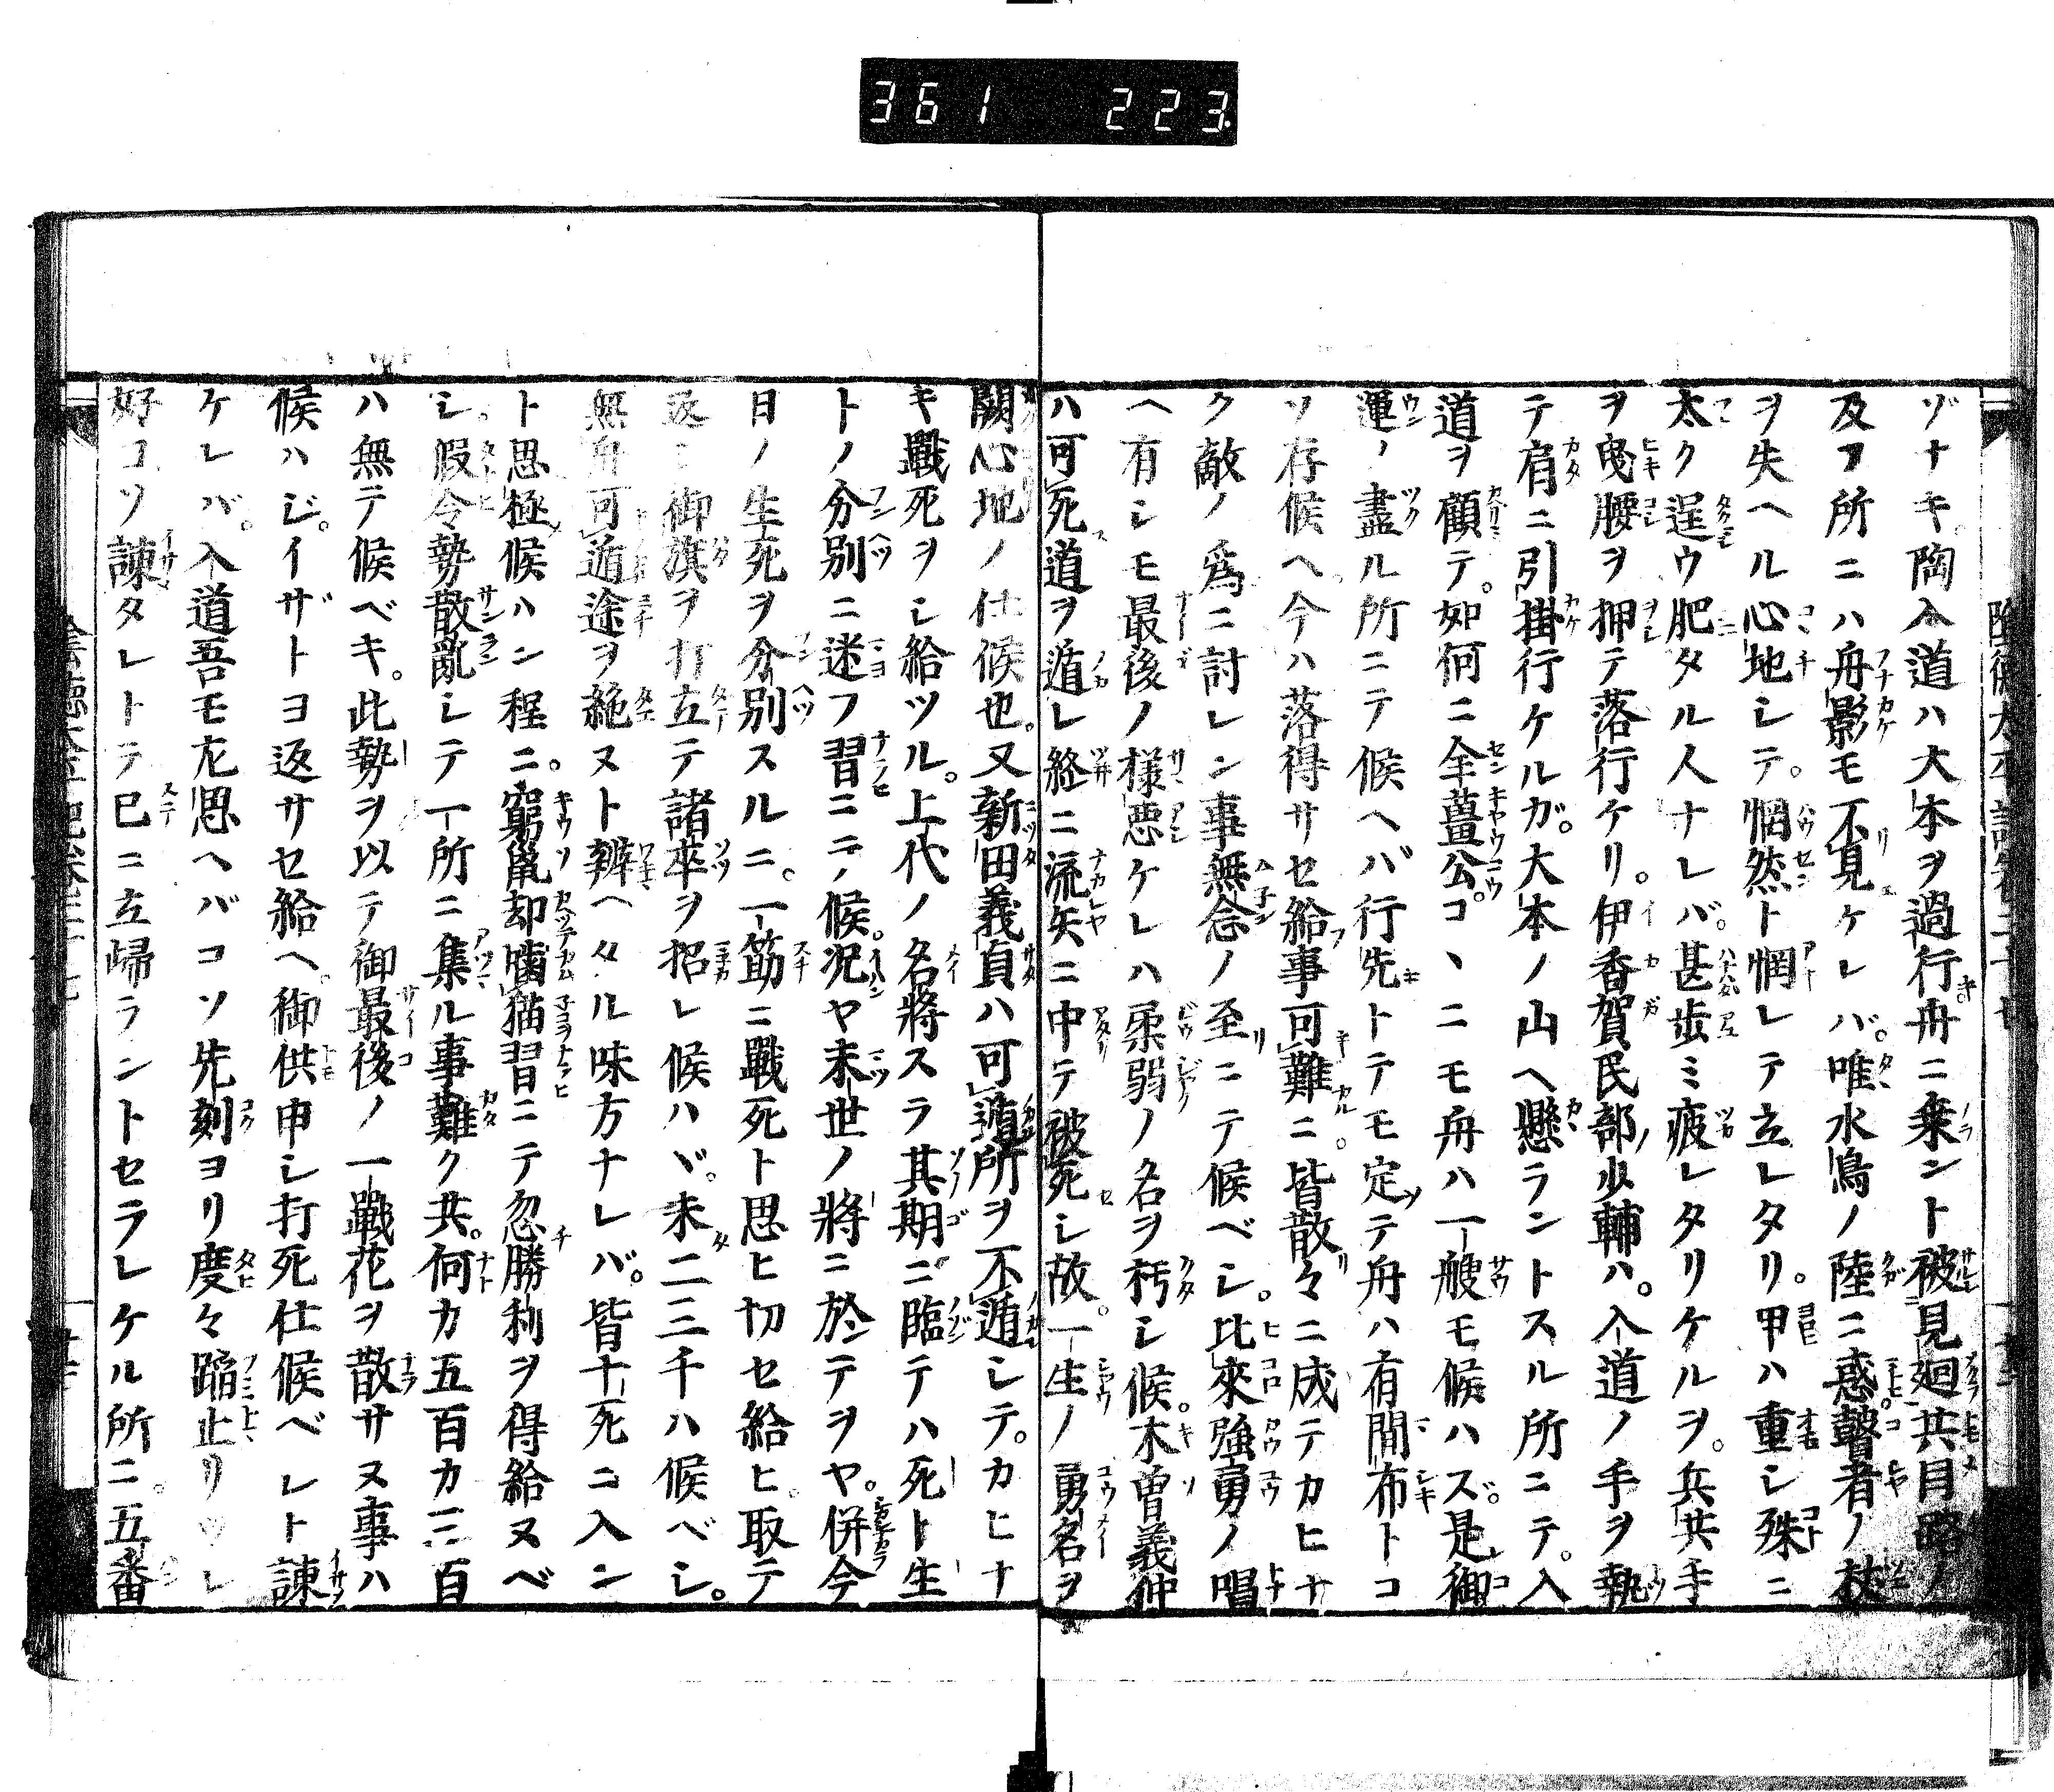 361 223
ゾナキ。陶入道ハ大本ヲ過行舟ニ乗ント被見廻共目路ノ
及フ所ニハ舟影モ不見ケレバ。唯水鳥ノ陸ニ惑。瞽者ノ杖
ヲ失ヘル心地シテ。惘然ト惘レテ立レタリ。甲ハ重シ殊ニ
太ク逞ウ肥タル人ナレバ。甚歩ミ疲レタリケルヲ。兵共手
ヲ曳腰ヲ押テ落行ケリ。伊香賀民部少輔ハ。入道ノ手ヲ執
テ肩ニ引掛行ケルガ。大本ノ山ヘ懸ラントスル所ニテ。入
道ヲ顧テ。如何ニ全薑公。コヽニモ舟ハ一艘モ候ハズ。是御
運ノ盡ル所ニテ候ヘバ行先トテモ定テ舟ハ有間布トコ
ソ存候ヘ今ハ落得サセ給事可難ニ。皆散々ニ成テカヒナ
ク敵ノ為ニ討レン事無念ノ至ニテ候ベシ。比來強勇ノ唱
ヘ有シモ最後ノ様悪ケレハ柔弱ノ名ヲ朽シ候。木曽義仲
ハ可死道ヲ遁レ終ニ流矢ニ中テ被死シ故。一生ノ勇名ヲ
闕心地ノ仕候也。又新田義貞ハ可遁所ヲ不遁シテ。カヒナ
キ戰死ヲシ給ツル。上代ノ名將スラ其期ニ臨テハ死ト生
トノ分別ニ迷フ習ニテ候。况ヤ末世ノ將ニ於テヲヤ。併今
日ノ生死ヲ分別スルニ。一筋ニ戰死ト思ヒ切セ給ヒ。取テ
返シ御旗ヲ打立テ諸卒ヲ招レ候ハヾ。未二三千ハ候ベシ。
無舟可遁途ヲ絶ヌト辨ヘタル味方ナレバ。皆十死ニ入ン
ト思極候ハン程ニ。窮鼠却噛猫習ニテ忽勝利ヲ得給ヌベ
シ。假令勢散亂シテ一所ニ集ル事難ク共。何カ五百カ三百
ハ無テ候ベキ。此勢ヲ以テ御最後ノ一戰花ヲ散サヌ事ハ
候ハジ。イザトヨ返サセ給ヘ。御供申シ打死仕候ベシト諫
ケレバ。入道吾モ尤思ヘバコソ先刻ヨリ度々蹈止リ
好コソ諫タレトテ已ニ立歸ラントセラレケル所ニ。五番